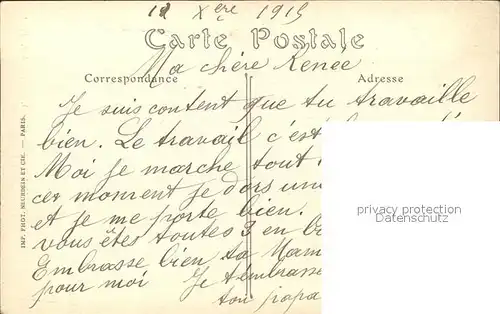 12 Xbre 1915
Carte Postale
Ma chère Renee
Correspondance
Adresse
Je suis content que tu travaille
bien. Le travail c'est
Moi je marche tout
cet moment je dors un
et je me porte bien.
vous êtes toutes 3 en b
Embrasse bien ta Mam
pour moi Je t'embrasse
ton papa
IMP. PHOT. NEURDEIN ET CIE. — PARIS.
privacy protection
Datenschutz